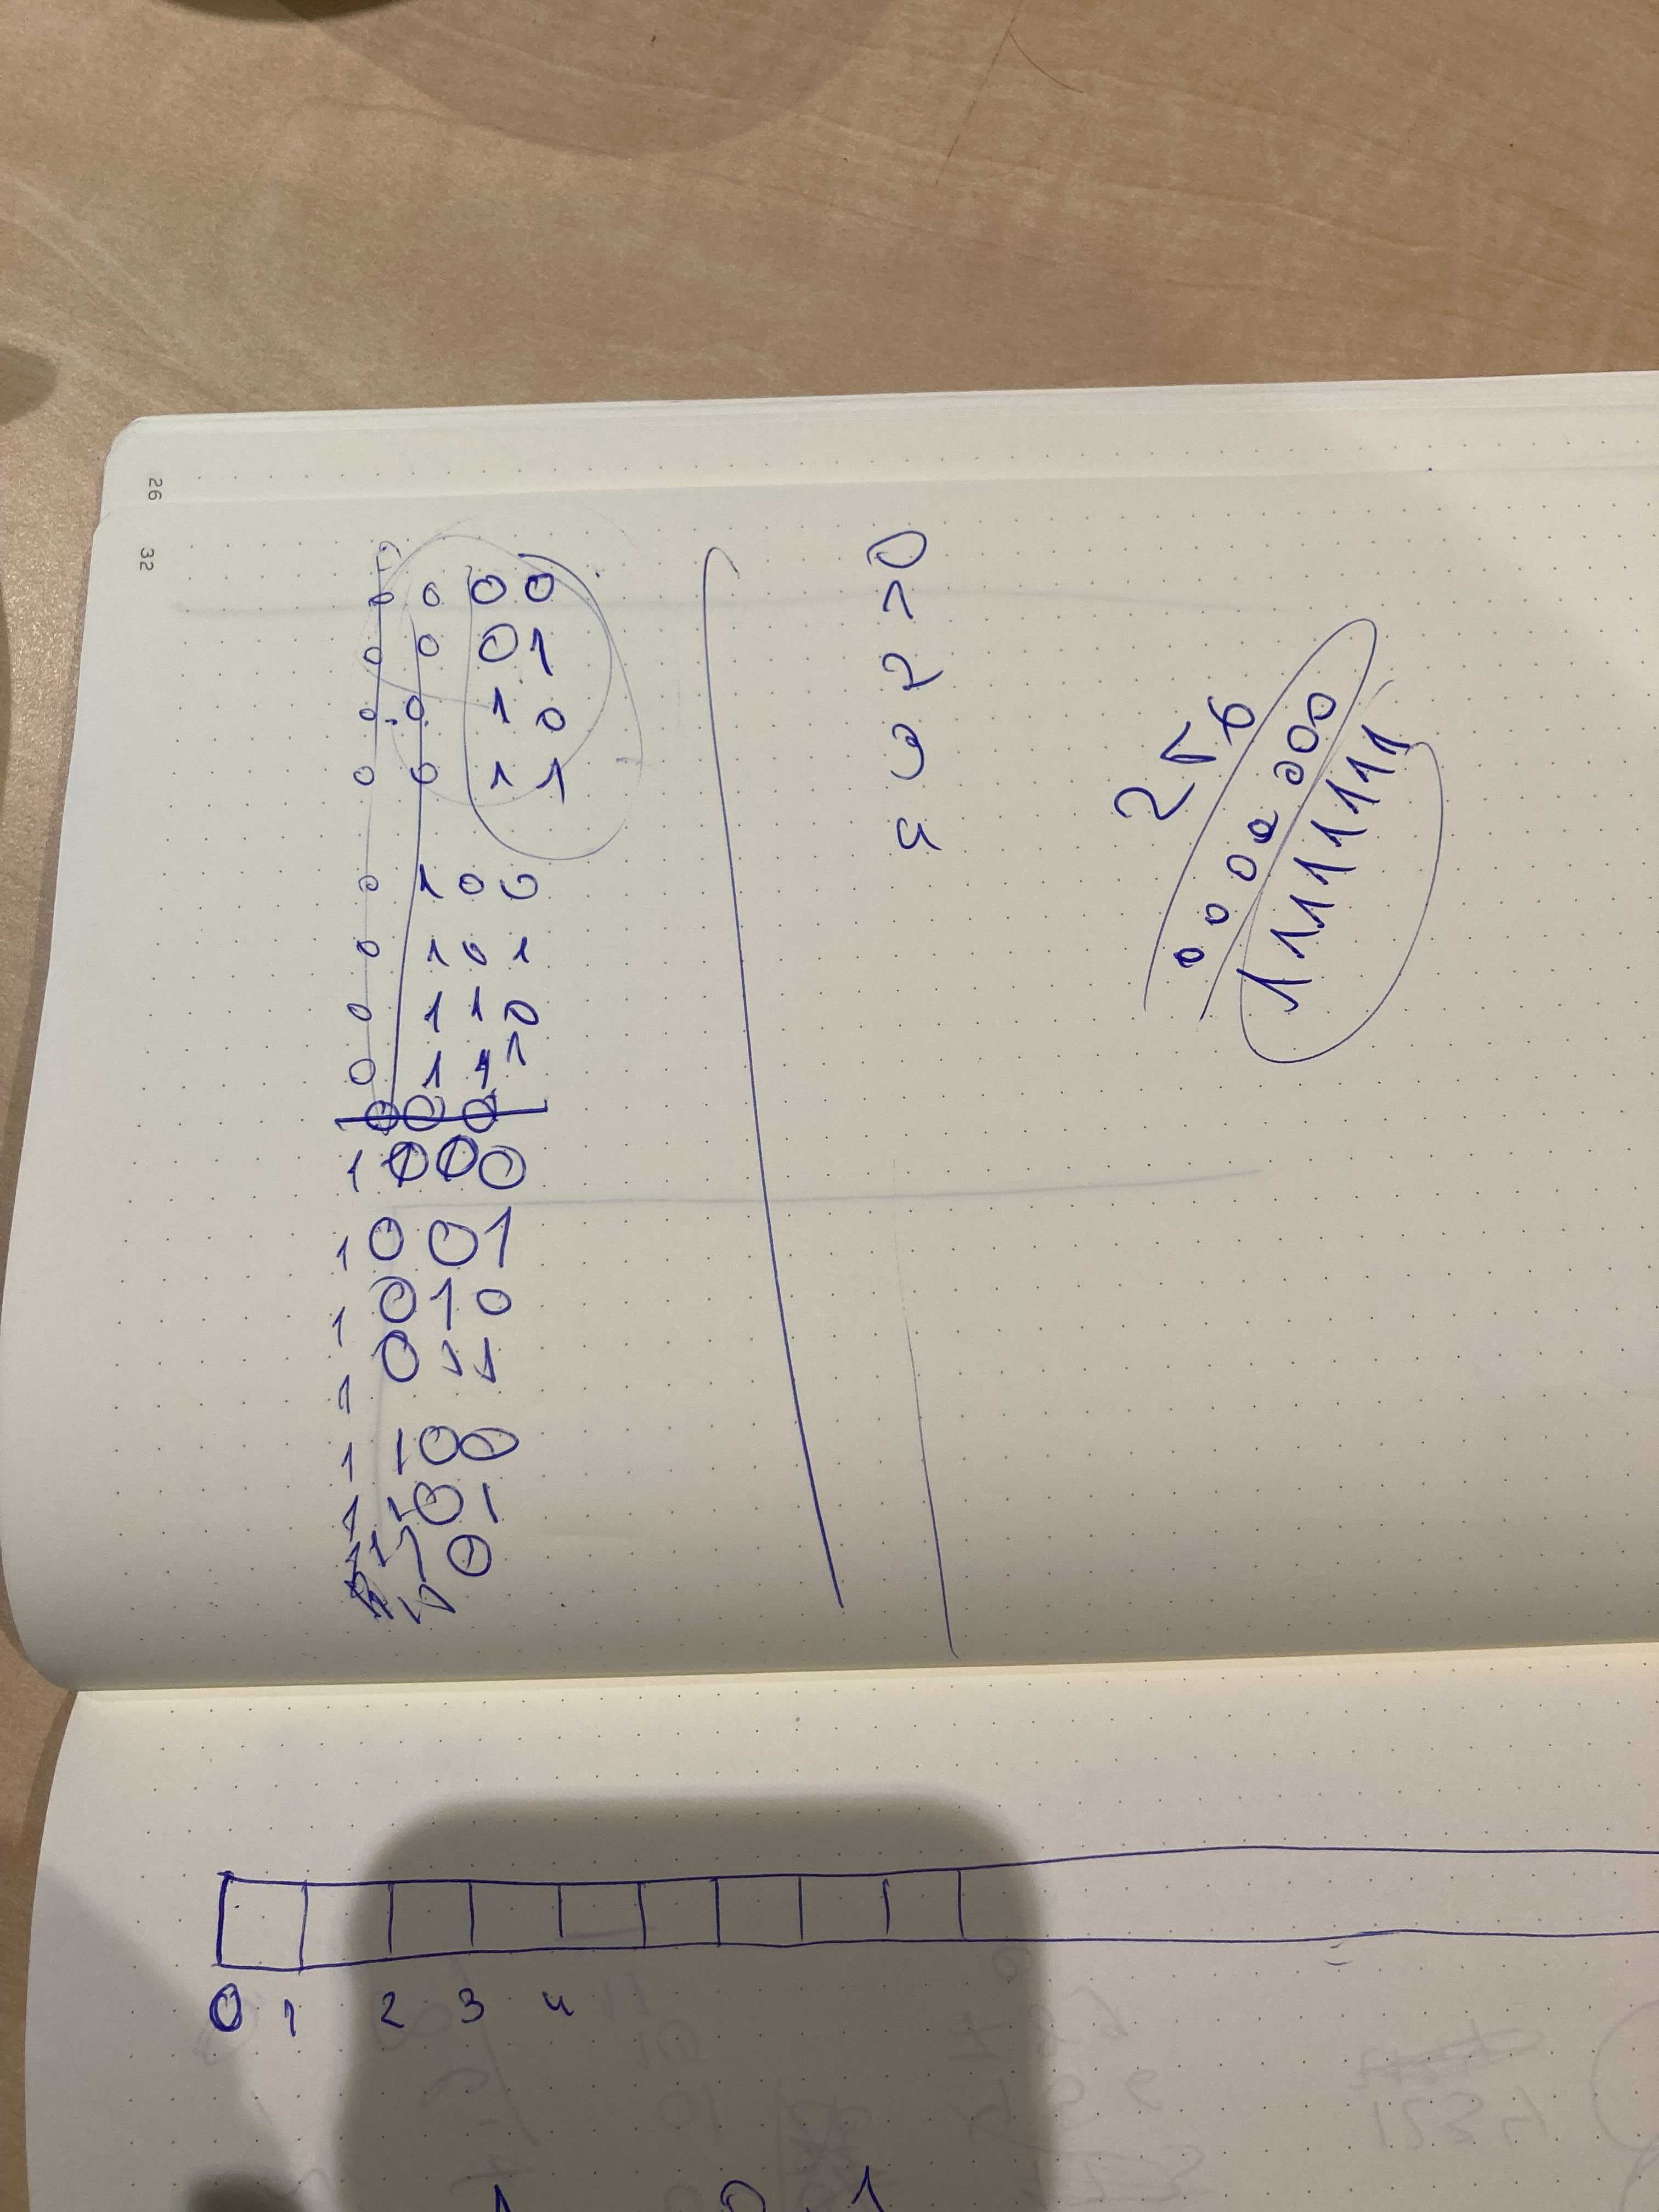 26
32
0 0 0 0
0 0 0 1
0 0 1 0
0 0 1 1
0 1 0 0
0 1 0 1
0 1 1 0
0 1 1 1
0 0 0
1 0 0 0
1 0 0 1
1 0 1 0
1 0 1 1
1 1 0 0
1 1 0 1
1 1 1 0
0
1
2
3
4
256
0 0 0 0 0 0 0
1 1 1 1 1 1 1 1
0 1 2 3 4